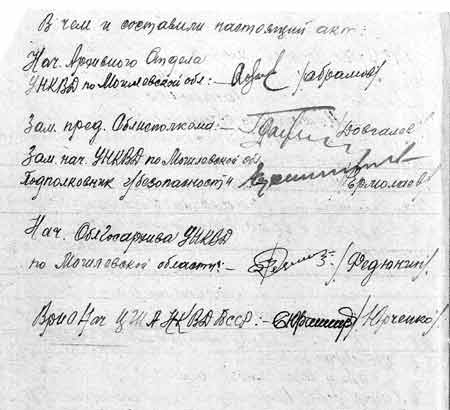 В чем и составили настоящий акт:
Нач. Архивного Отдела
УНКВД по Могилевской обл: — /Абрамов/.
Зам. пред. Облисполкома: — /Довгалов
Зам. нач. УНКВД по Могилевской обл
Подполковник г/безопасности /Ермолаев
Нач. Облгосархива УНКВД
по Могилевской области: — /Федюнин/.
Врио Нач ЦИА НКВД БССР: — /Юрченко/